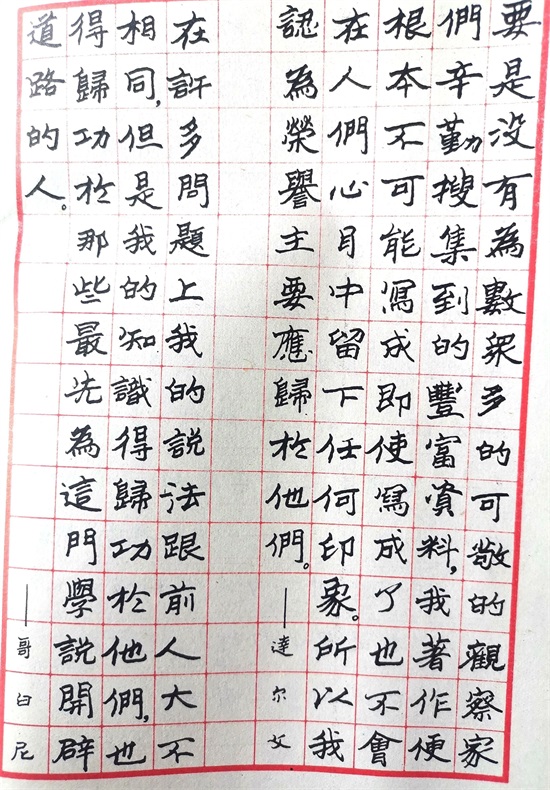 要是没有為數衆多的可敬的觀察家
們辛勤搜集到的豐富資料,我著作便
根本不可能寫成即使寫成了也不會
在人們心目中留下任何印象。所以我
認為榮譽主要應歸於他們。——達尔文
在許多問題上我的說法跟前人大不
相同,但是我的知識得歸功於他們,也
得歸功於那些最先為這門學說開辟
道路的人。——哥白尼